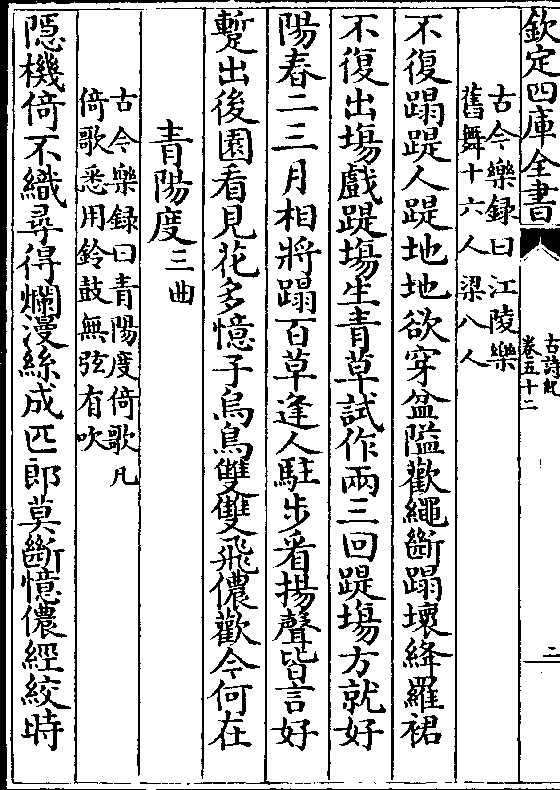 欽定四庫全書
古詩紀
卷五十二
二
古今樂録曰江陵樂
舊舞十六人梁八人
不復蹋踶人踶地地欲穿盆隘歡繩斷蹋壞絳羅裙
不復出塲戲踶塲生青草試作兩三回踶塲方就好
陽春二三月相將蹋百草逢人駐步看揚聲皆言好
蹔出後園看見花多憶子烏鳥雙雙飛儂歡今何在
青陽度三曲
古今樂録曰青陽度倚歌凡
倚歌悉用鈴鼓無弦有吹
隱機倚不織尋得爛漫絲成匹郎莫斷憶儂經絞時